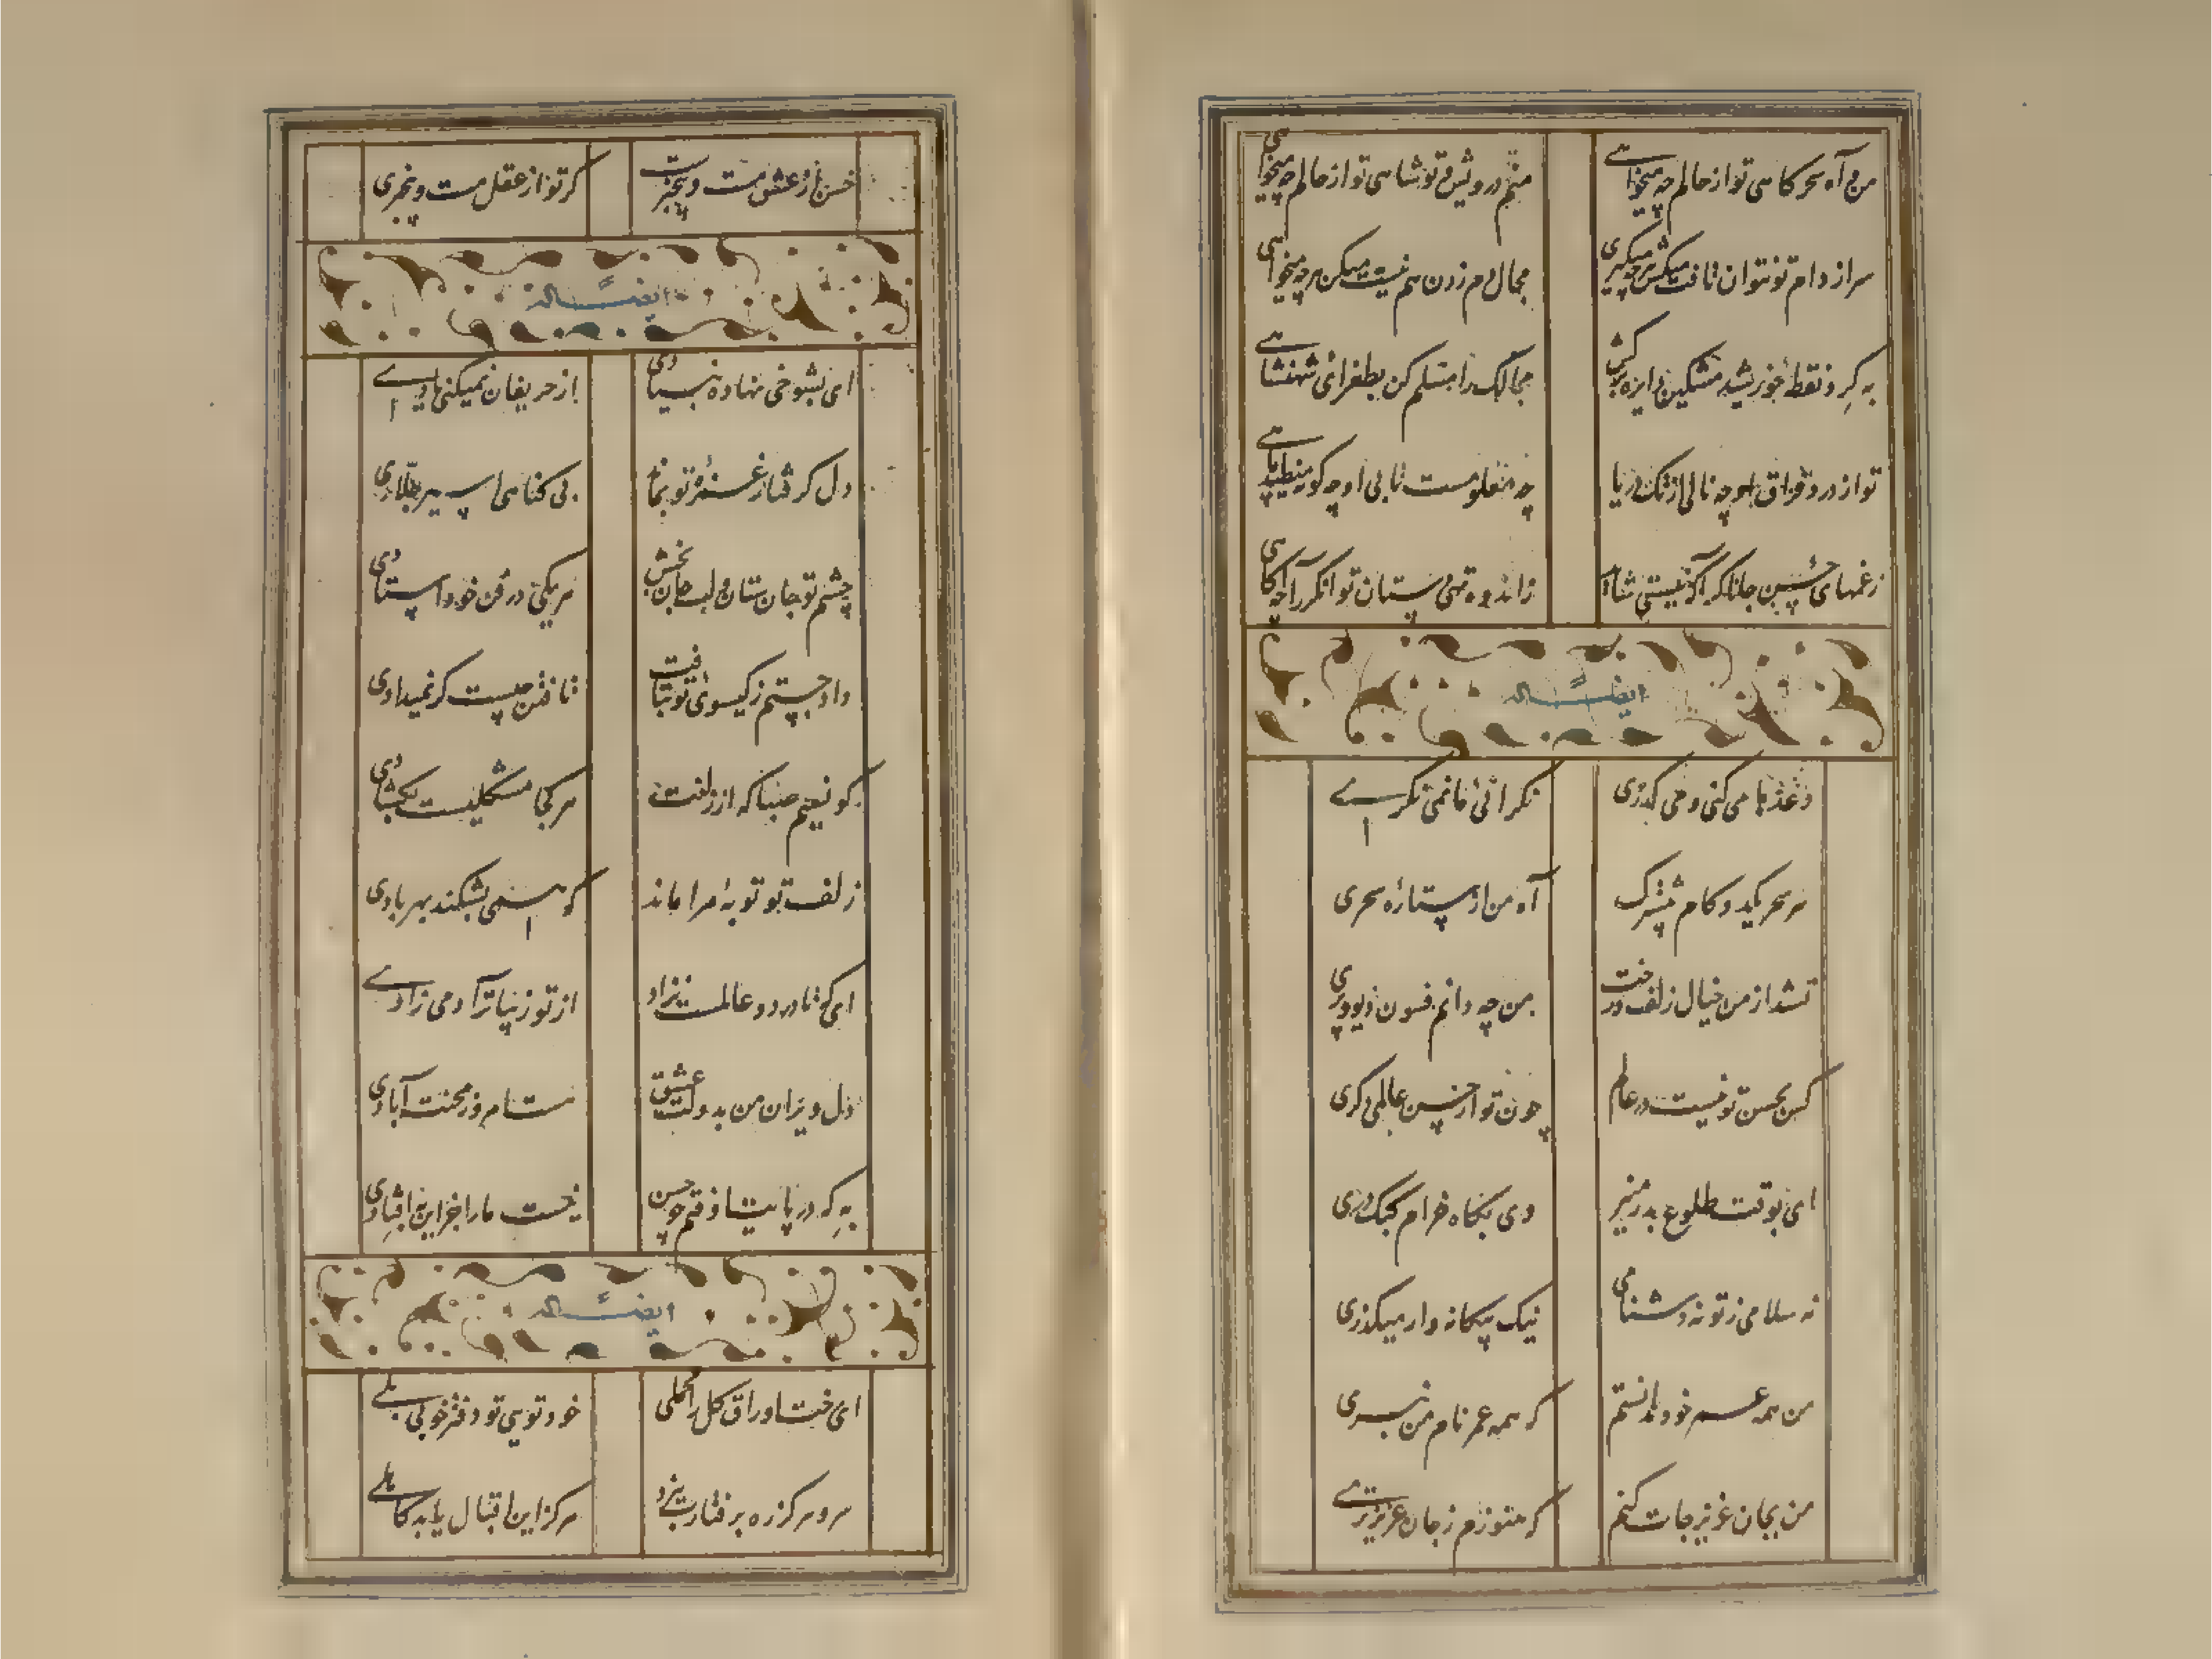 من و آه سحرگاهی تو از حالم چه میخواهی
منم درویش و تو شاهی تو از حالم چه میخواهی
سر از دام تو نتوان تافت میکش هر چه میگیری
مجال دم زدن هم نیست میکن هر چه میخواهی
به گرد نقطه خورشید مشکین دایره برکش
ممالک را مسلم کن بطغرای شهنشاهی
تو از درد فراق او چه نالی از تک دریا
چه معلومست تا بی او چه گونه میطپد ماهی
ز غمهای حسن جانا گر آگه نیستی شاید
ز اندوه تهی دستان توانگر را چه آگاهی
ایضا له
وعدها می کنی و می گذری
نگرانی ما نمی نگری
هر سحر یک دو گام پیشترک
آه من از ستاره سحری
نشد از من خیال زلف و رخت
من چه دانم فسون دیو و پری
کس بحسن تو نیست در عالم
چون تو از حسن عالمی دگری
ای بوقت طلوع بدر منیر
وی بگاه خرام کبک دری
نه سلامی ز تو نه دشنامی
نیک بیگانه وار میگذری
من همه عمر خود ندانستم
که همه عمر نام من نبری
من بجان عزیز جات کنم
که هنوزم ز جان عزیزتری
حسن از عشق مست و بیخبرست
گر تو از عقل مست و بیخبری
ایضا له
ای بشوخی نهاده بنیادی
از حریفان نمیکنی یادی
دل گرفتار غمزه تو بماند
بی گناهی اسیر جلادی
چشم تو جان ستان و لب جان بخش
هر یکی در فن خود استادی
داد جستم ز گیسوی تو بتافت
تافتن چیست گر نمیدادی
کو نسیم صبا که از زلفت
هر کجا مشکلیست بگشادی
زلف تو توبه مرا ماند
که همی بشکند بهر بادی
ای که تا در دو عالمست نژاد
از تو زیباتر آدمی زادی
دل ویران من بدولت عشق
هست امروز محنت آبادی
به که در پایت اوفتم چو حسن
نیست ما را جز این به افتادی
ایضا له
ای خط اوراق گل را محملی
خود تویی تو دفتر خوبی بلی
سرو هرگز ره برفتارت نبرد
هرگز این اقبال یابد کاهلی